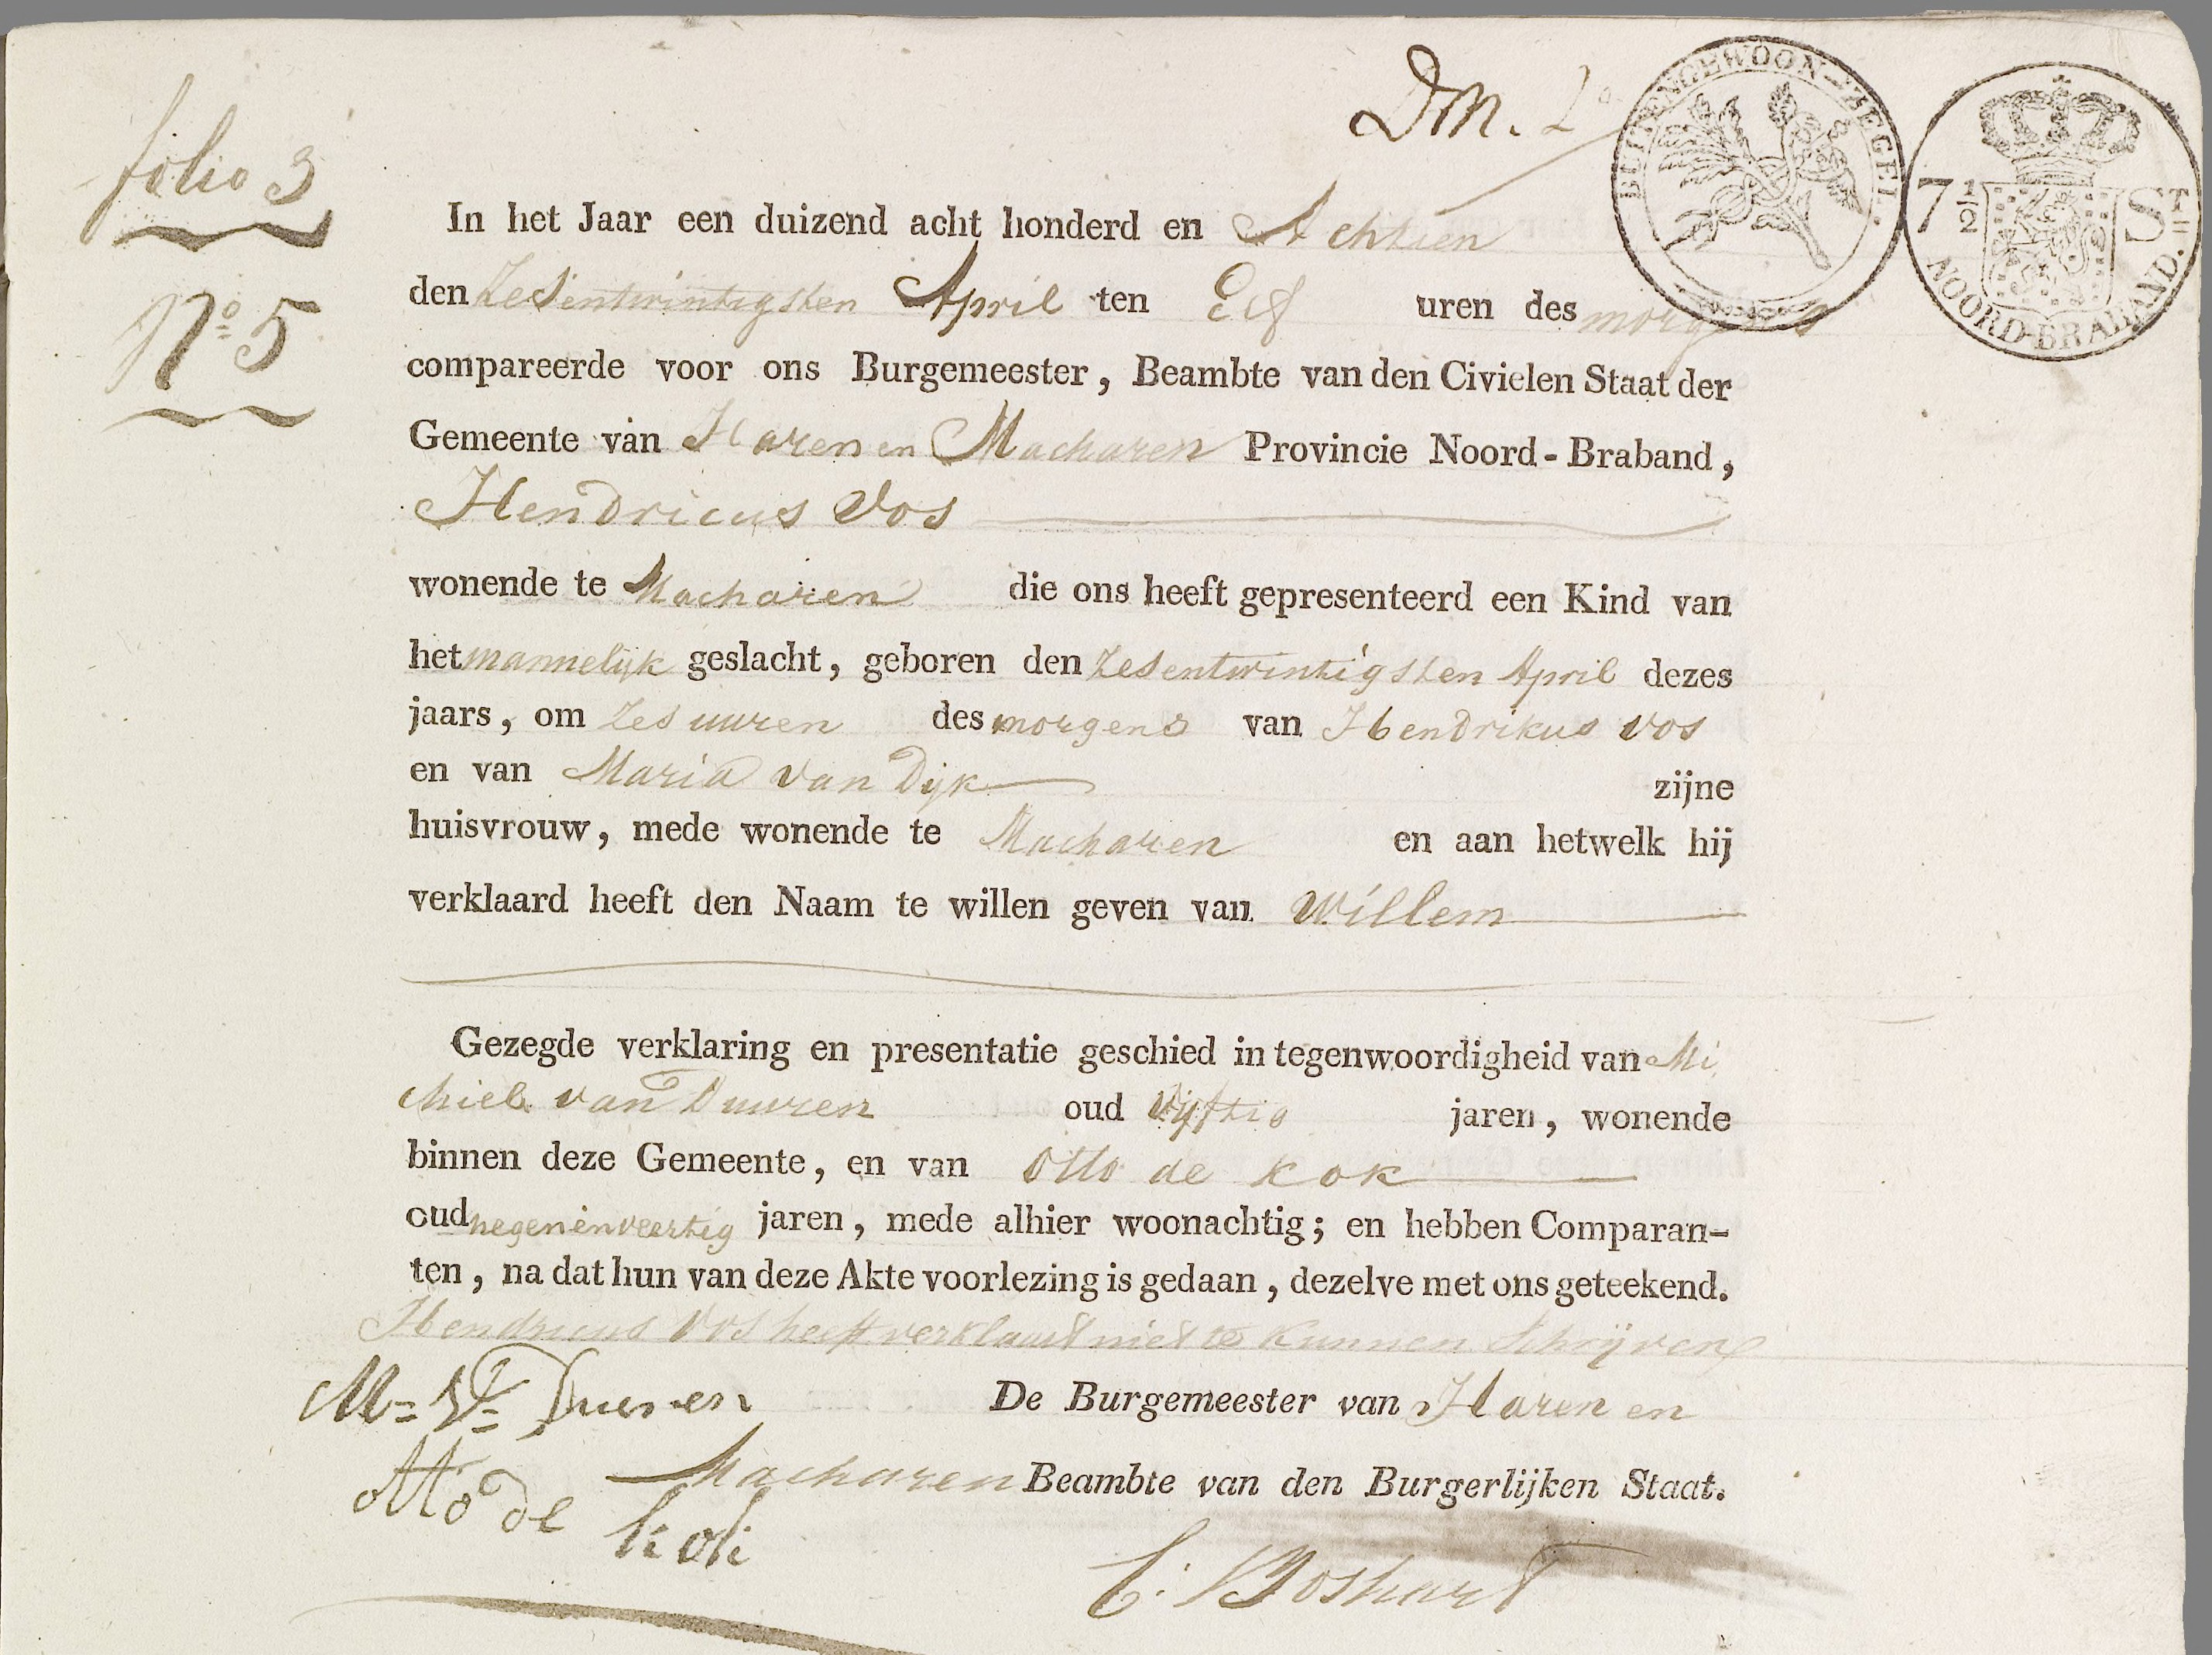 folio 3
No 5
Dm.
BUITENGEWOON-ZEGEL.
7 1/2 ST
NOORD-BRABAND.
In het Jaar een duizend acht honderd en Achtien
den Zesentwintigsten April ten Elf uren des morgens
compareerde voor ons Burgemeester, Beambte van den Civielen Staat der
Gemeente van Haren en Macharen Provincie Noord-Braband,
Hendricus Vos
wonende te Macharen die ons heeft gepresenteerd een Kind van
het mannelijk geslacht, geboren den Zesentwintigsten April dezes
jaars, om Zes uuren des morgens van Hendrikus Vos
en van Maria van Dijk zijne
huisvrouw, mede wonende te Macharen en aan hetwelk hij
verklaard heeft den Naam te willen geven van Willem
Gezegde verklaring en presentatie geschied in tegenwoordigheid van Mi
chiel van Duuren oud Vijftig jaren, wonende
binnen deze Gemeente, en van Otto de Kok
oud negenenveertig jaren, mede alhier woonachtig; en hebben Comparan-
ten, na dat hun van deze Akte voorlezing is gedaan, dezelve met ons geteekend.
Hendricus Vos heeft verklaart niet te Kunnen Schrijven
M= V= Duuren
De Burgemeester van Haren en
Macharen Beambte van den Burgerlijken Staat.
Otto de Kok